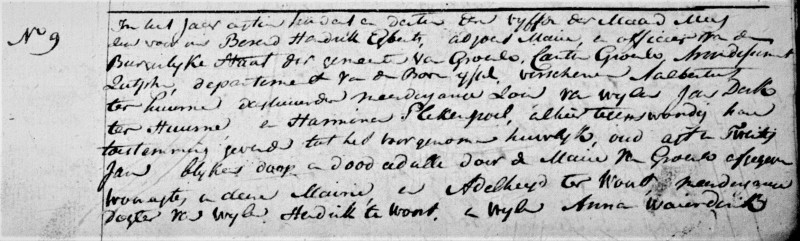 No 9
In het Jaar agtien hondert en dertien den vyftn der Maand Mey
zien voor ons Berend Hendrik Egberts, adjoint Maire, en officier van de
Burgerlyke Staat der gemeente van Groenlo, Canton Groenlo, Arrondissement
Zutphen, departement van de Boven yssel, verschenen Aalbertus
ter Huurne meerderjarige Zoon van wylen Jan Derk
ter Huurne, en Harmina Plekenpoel, alhier teegenswoordig haar
toestemming gevende tot het voorgenomen huwelyk, oud agt en
Jaar blykens doop en dood cedulle door de Maire van Groenlo afgegeven
woonagtig in deze Mairie, en Adelheyd te Woort, meerderjarige
dogter van wylen Hendrik te Woort, en wylen Anna